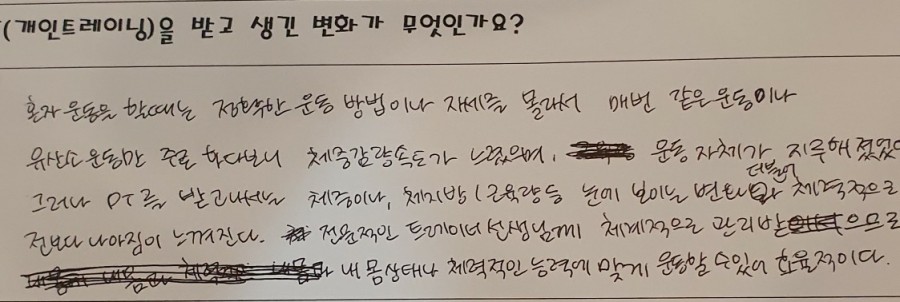 (개인트레이닝)을 받고 생긴 변화가 무엇인가요?
혼자 운동을 할때는 정확한 운동 방법이나 자세를 몰라서 매번 같은 운동이나
유산소 운동만 주로 하다보니 체중감량속도가 느렸으며, 운동 자체가 지루해졌었
더불어
그러나 PT를 받고나서는 체중이나, 체지방 / 근육량등 눈에 보이는 변화와 체력적으로
전보다 나아짐이 느껴진다. 전문적인 트레이너 선생님께 체계적으로 관리받으므로
내 몸상태나 체력적인 능력에 맞게 운동할 수 있어 효율적이다.